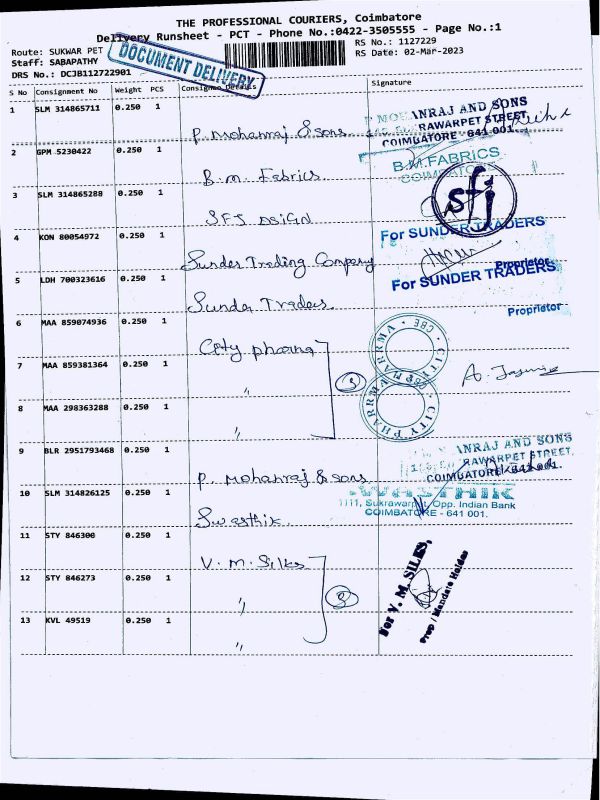 THE PROFESSIONAL COURIERS, Coimbatore
Delivery Runsheet - PCT - Phone No.:0422-3505555 - Page No.:1
Route: SUKWAR PET
RS No.: 1127229
Staff: SABAPATHY
RS Date: 02-Mar-2023
DRS No.: DCJB112722901
DOCUMENT DELIVERY
S No Consignment No Weight PCS Consignee Details Signature
1 SLM 314865711 0.250 1
P. Mohanraj & Sons
ANRAJ AND SONS
RAWARPET STREET,
COIMBATORE - 641 001.
2 GPM 5230422 0.250 1
B.M. Fabrics
B.M.FABRICS
COIMBATORE
3 SLM 314865288 0.250 1
SFJ DSIGN
sfj
For SUNDER TRADERS
4 KON 80054972 0.250 1
Sunder Trading Company
Proprietor
5 LDH 700323616 0.250 1
Sunder Traders
For SUNDER TRADERS
Proprietor
6 MAA 859074936 0.250 1
City pharma
CITY PHARRMA CBE
7 MAA 859381364 0.250 1
"
3
8 MAA 298363288 0.250 1
"
CITY PHARRMA
9 BLR 2951793468 0.250 1
P. Mohanraj & Sons
ANRAJ AND SONS
RAWARPET STREET,
COIMBATORE - 641 001.
10 SLM 314826125 0.250 1
Swasthik
SWASTHIK
1111, Sukrawarpet, Opp. Indian Bank
COIMBATORE - 641 001.
11 STY 846300 0.250 1
V. M. Silks
For V. M. SILKS,
Prop / Mandate Holder
12 STY 846273 0.250 1
"
3
13 KVL 49519 0.250 1
"